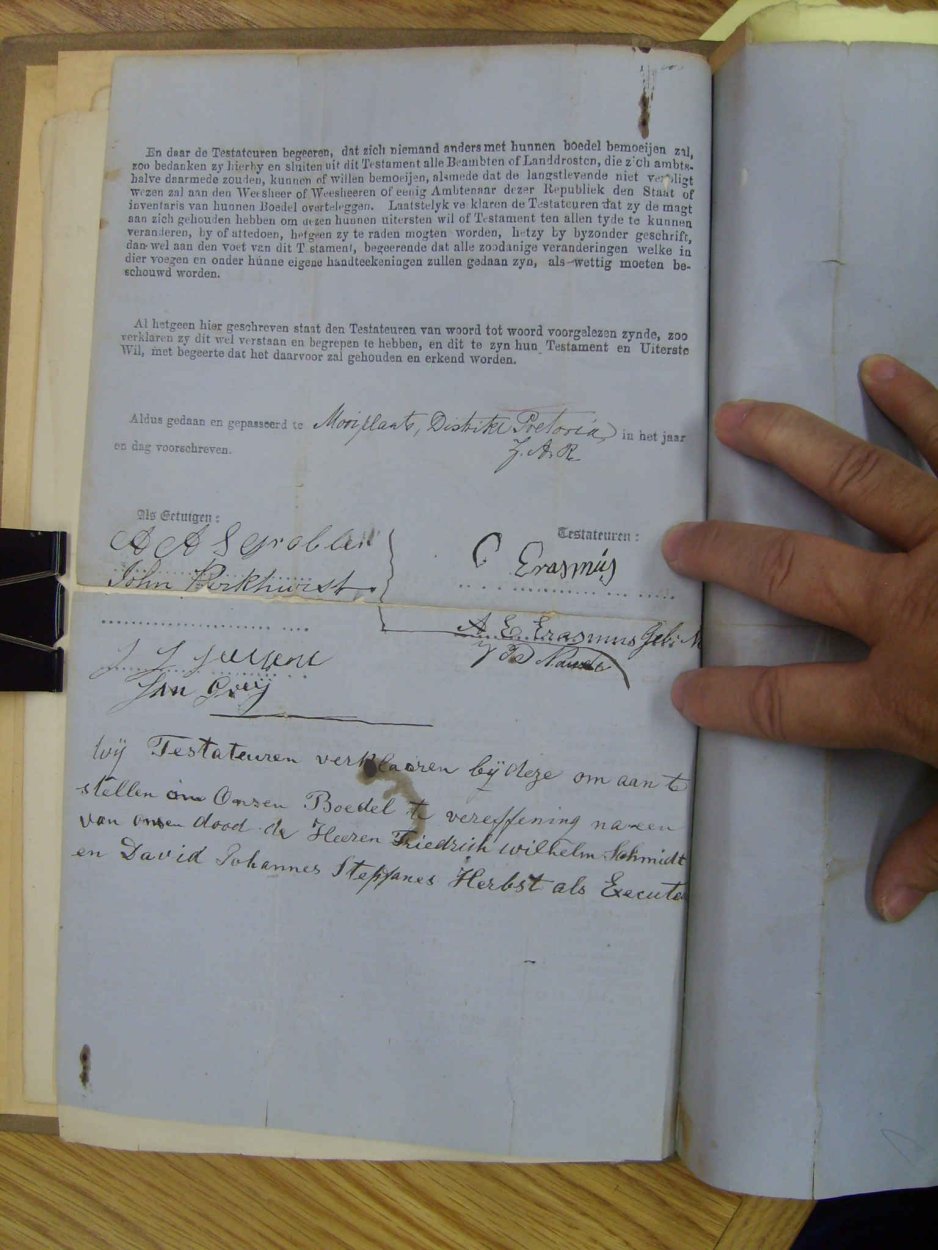 En daar de Testateuren begeeren, dat zich niemand anders met hunnen boedel bemoeijen zal,
zoo bedanken zy hierby en sluiten uit dit Testament alle Beambten of Landdrosten, die zich ambts-
halve daarmede zouden, kunnen of willen bemoeijen, alsmede dat de langstlevende niet verpligt
wezen zal aan den Weesheer of Weesheeren of eenig Ambtenaar dezer Republiek den Staat of
inventaris van hunnen Boedel overteleggen. Laatstelyk ve klaren de Testateuren dat zy de magt
aan zich gehouden hebben om dezen hunnen uitersten wil of Testament ten allen tyde te kunnen
veranderen, by of aftedoen, hetgeen zy te raden mogten worden, hetzy by byzonder geschrift,
dan wel aan den voet van dit T stament, begeerende dat alle zoodanige veranderingen welke in
dier voegen en onder hunne eigene handteekeningen zullen gedaan zyn, als wettig moeten be-
schouwd worden.
Al hetgeen hier geschreven staat den Testateuren van woord tot woord voorgelezen zynde, zoo
verklaren zy dit wel verstaan en begrepen te hebben, en dit te zyn hun Testament en Uiterste
Wil, met begeerte dat het daarvoor zal gehouden en erkend worden.
Aldus gedaan en gepasseerd te Mooiplaats, Distrikt Pretoria, in het jaar
Z. A. R
en dag voorschreven.
Als Getuigen:
Testateuren:
A A S
C Erasmus
John Parkhurst
A E Erasmus Geb:
J J
Jan
Wij Testateuren verklaaren bij deze om aan t
stellen om Onzen Boedel te vereffening na een
van onsen dood de Heeren Friedrich Wilhelm Schmidt
en David Johannes Steffanes Herbst als Execute